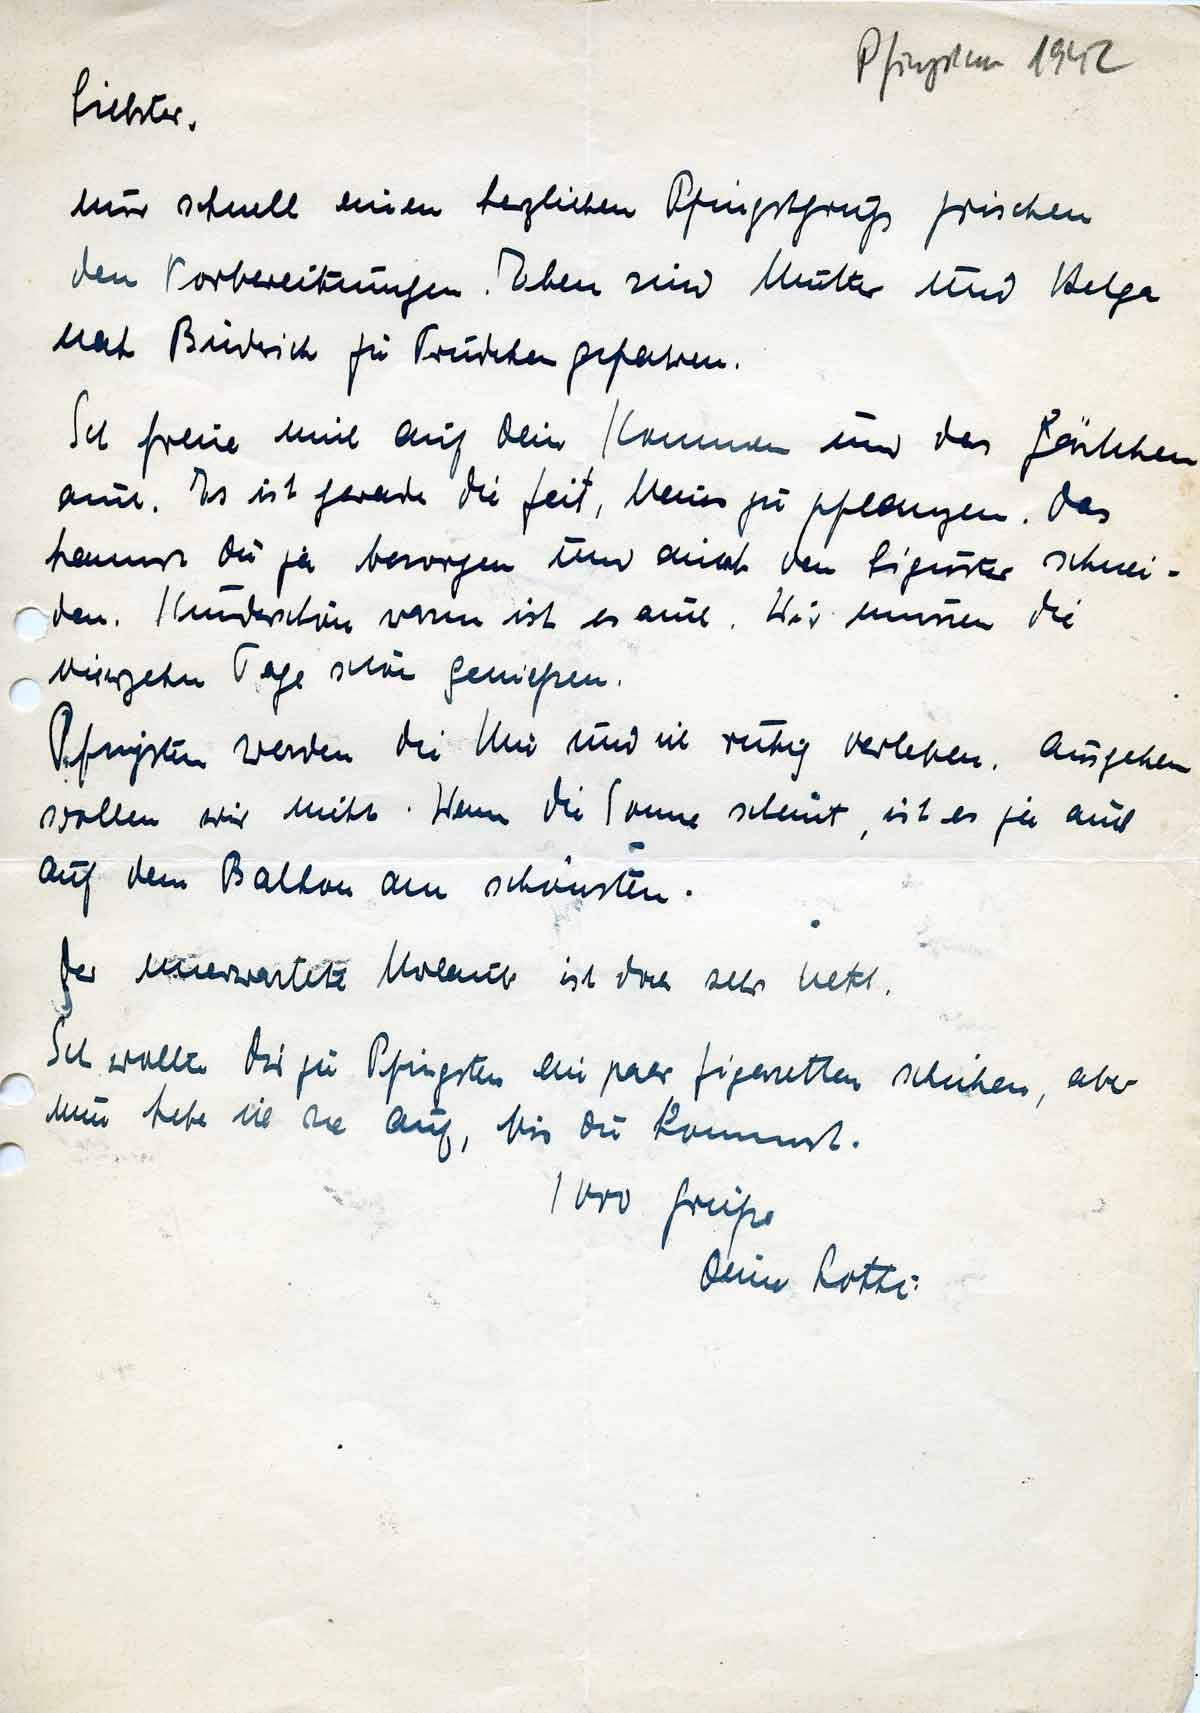 Pfingsten 1942
Liebster.
nur schnell einen herzlichen Pfingstgruß zwischen
den Vorbereitungen. Eben sind Mutter und Helga
nach Büderich zu Trudchen gefahren.
Ich freue mich auf Dein Kommen und das Gärtchen
auch. Es ist gerade die Zeit, Neues zu pflanzen. Das
kannst Du ja besorgen und auch den Liguster schnei-
den. Wunderschön warm ist es auch. Wir müssen die
vierzehn Tage schön genießen.
Pfingsten werden die und ich ruhig verleben. Ausgehen
wollen wir nicht. Wenn die Sonne scheint, ist es ja auch
auf dem Balkon am schönsten.
Der unerwartete Urlaub ist doch sehr nett.
Ich wollte Dir zu Pfingsten ein paar Zigaretten schicken, aber
nun hebe ich sie auf, bis Du kommst.
1000 Grüße
Deine Lotti